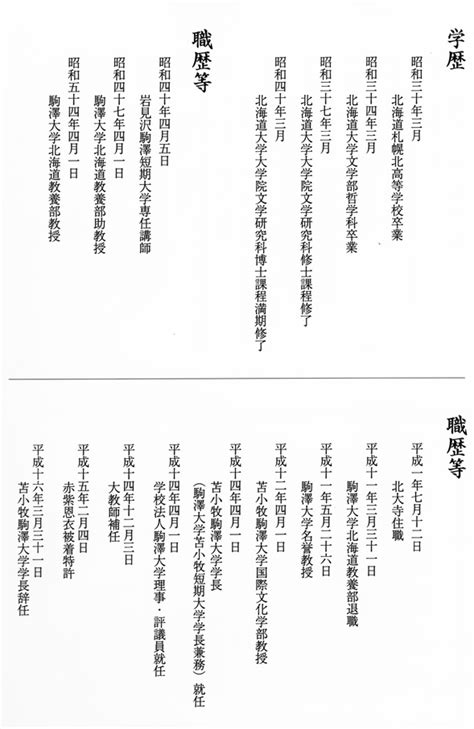 学歴
昭和三十年三月
北海道札幌北高等学校卒業
昭和三十四年三月
北海道大学文学部哲学科卒業
昭和三十七年三月
北海道大学大学院文学研究科修士課程修了
昭和四十年三月
北海道大学大学院文学研究科博士課程満期修了
職歴等
昭和四十年四月五日
岩見沢駒澤短期大学専任講師
昭和四十七年四月一日
駒澤大学北海道教養部助教授
昭和五十四年四月一日
駒澤大学北海道教養部教授
職歴等
平成一年七月十二日
北大寺住職
平成十一年三月三十一日
駒澤大学北海道教養部退職
平成十一年五月二十六日
駒澤大学名誉教授
平成十二年四月一日
苫小牧駒澤大学国際文化学部教授
平成十四年四月一日
苫小牧駒澤大学学長
（駒澤大学苫小牧短期大学学長兼務）就任
平成十四年四月一日
学校法人駒澤大学理事・評議員就任
平成十四年十二月三日
大教師補任
平成十五年二月四日
赤紫恩衣被着特許
平成十六年三月三十一日
苫小牧駒澤大学学長辞任